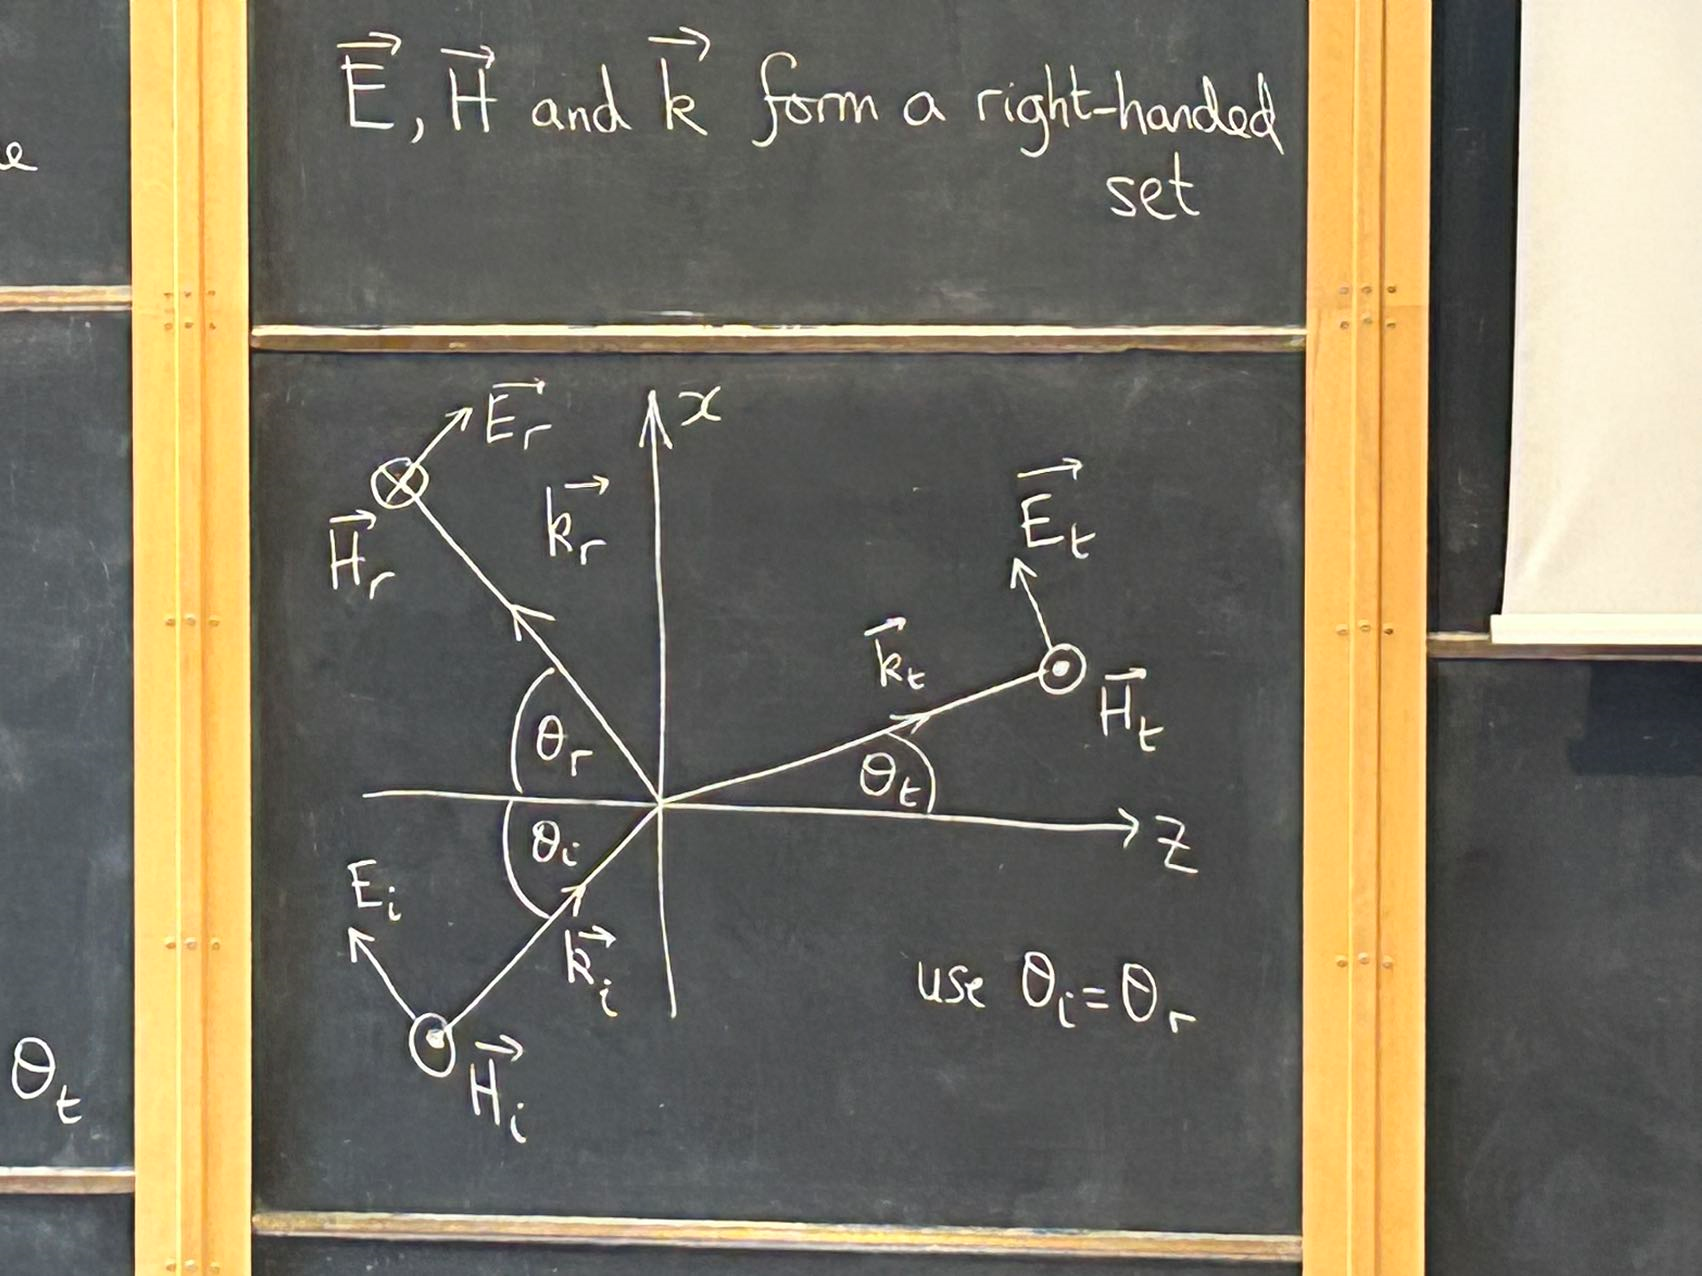 e
θt
E⃗, H⃗ and k⃗ form a right-handed
set
E⃗r
x
k⃗r
H⃗r
E⃗t
k⃗t
H⃗t
θr
θt
z
θi
Ei
k⃗i
use θi = θr
H⃗i